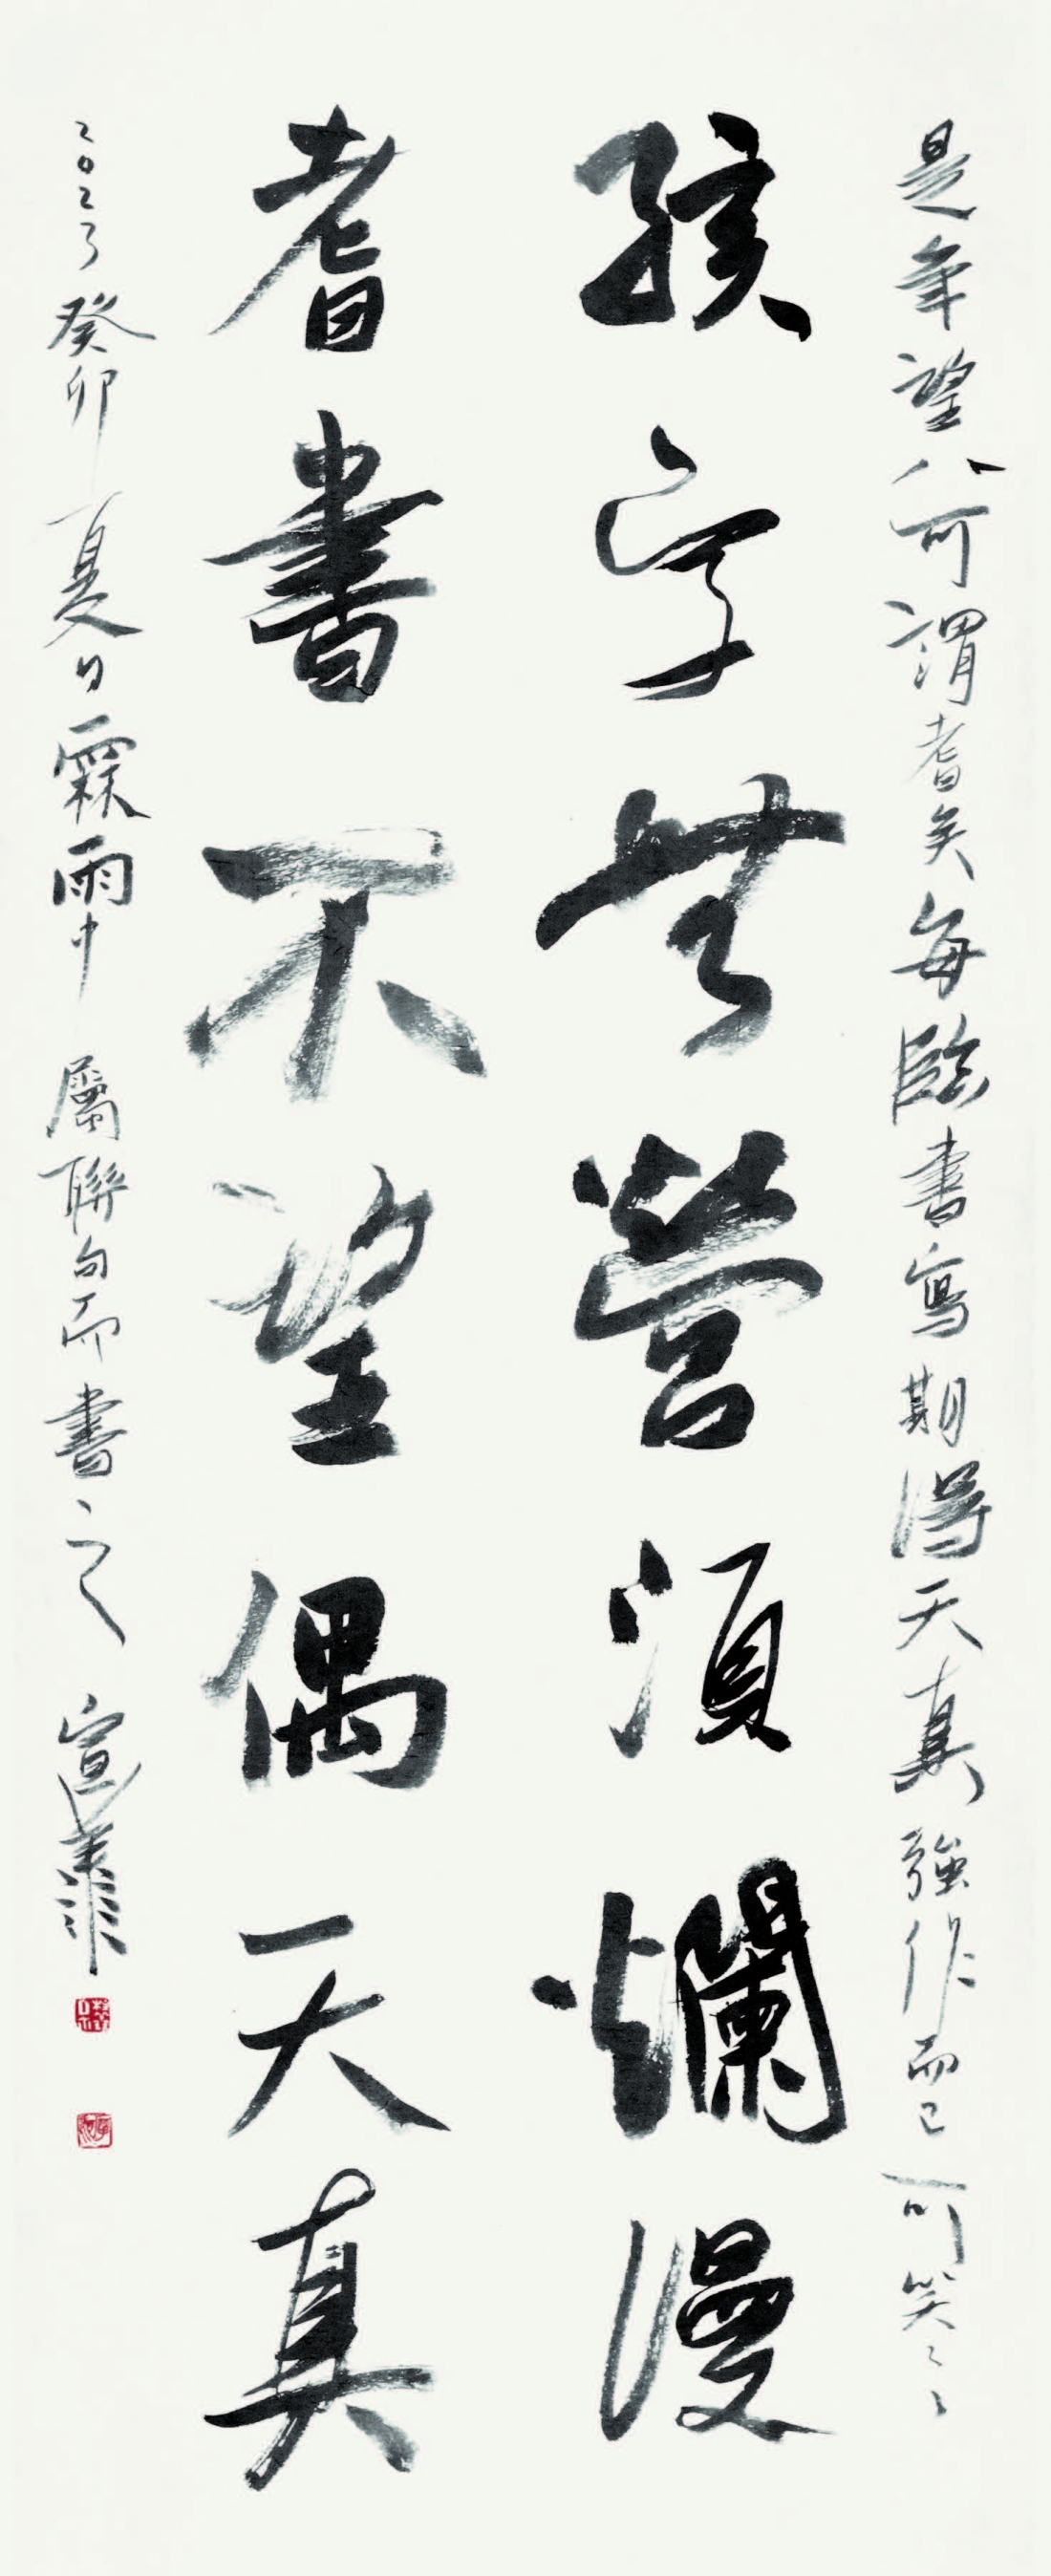 是年望八可謂耆矣每臨書寫期得天真強作而已可笑〻〻
孩字無營須爛漫
耆書不望偶天真
2023癸卯夏日霖雨中屬聯句而書之